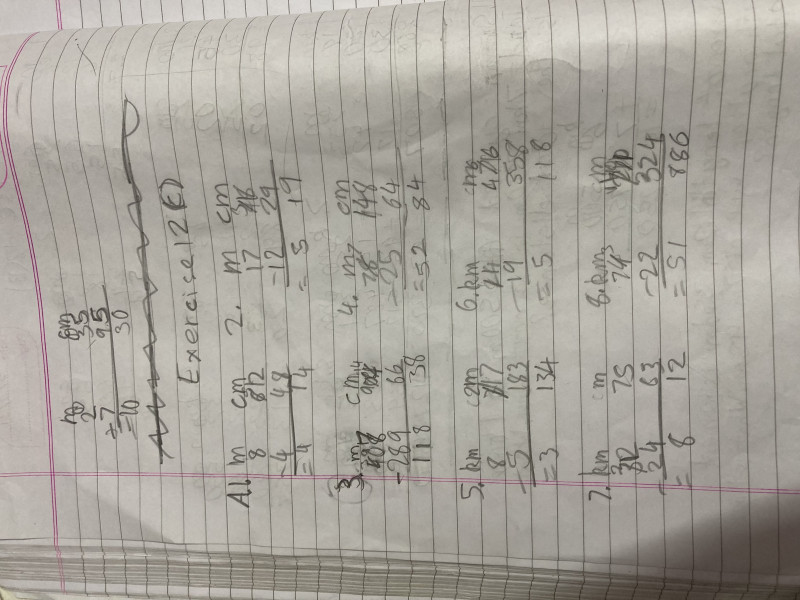 m cm
2 35
+7 95
=10 30
Exercise 12(C)
A1. m cm 2. m cm
8 17
-4 48 -12 29
=4 14 = 5 19
3. m cm 4. m cm
148
-289 66 -25 64
118 38 =52 84
5. km m 6. km m
8
-5 183 -19 358
=3 134 =5 118
7. km m 8. km m
75
-24 63 -22 324
= 8 12 =51 886